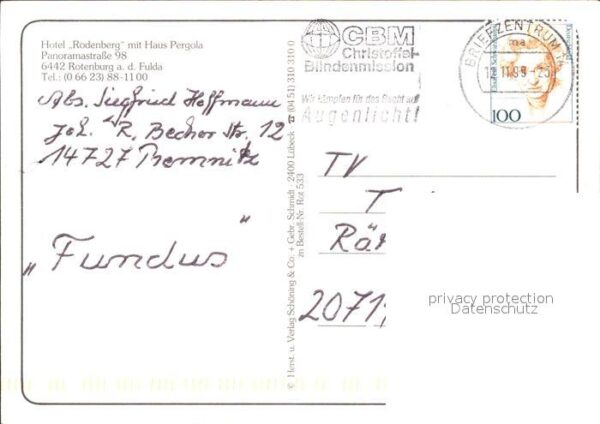 Hotel „Rodenberg" mit Haus Pergola
Panoramastraße 98
6442 Rotenburg a. d. Fulda
Tel.: (0 66 23) 88-11 00
Abs. Siegfried Hoffmann
Joh. R. Becher Str. 12
14727 Premnitz
„Fundus"
© Herst. u. Verlag Schöning & Co. + Gebr. Schmidt · 2400 Lübeck ☎ (04 51) 310 310 0
zn Bestell-Nr. Rot 533
CBM
Christoffel-
Blindenmission
Wir kämpfen für das Recht auf
Augenlicht!
BRIEFZENTRUM 14
100
TV
T
Rä
2071
privacy protection
Datenschutz